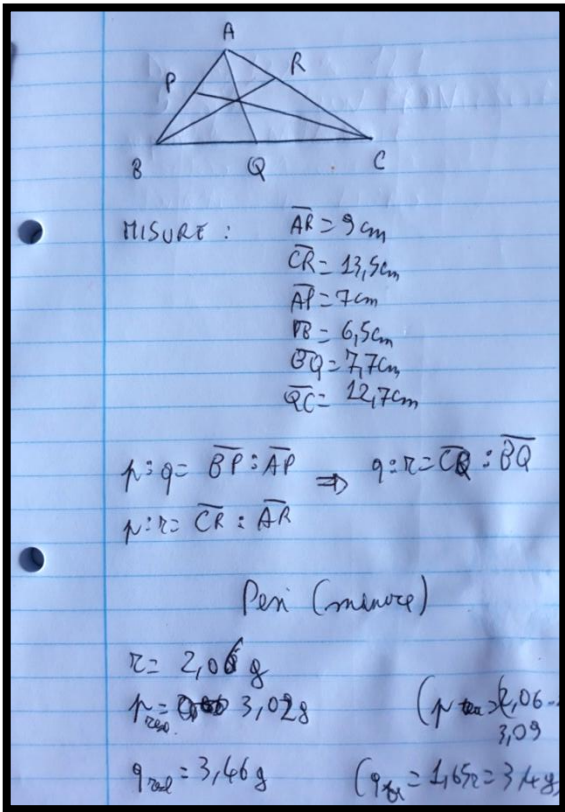 A
P
R
B
Q
C
MISURE :
AR = 9 cm
CR = 13,5cm
AP = 7cm
PB = 6,5cm
BQ = 7,7cm
QC = 12,7cm
p : q = BP : AP ⇒ q : r = CQ : BQ
p : r = CR : AR
Pesi (misure)
r = 2,06 g
p = 3,02g (p = 2,06
3,09
q real = 3,46 g (q = 1,65r = 3,4 g)